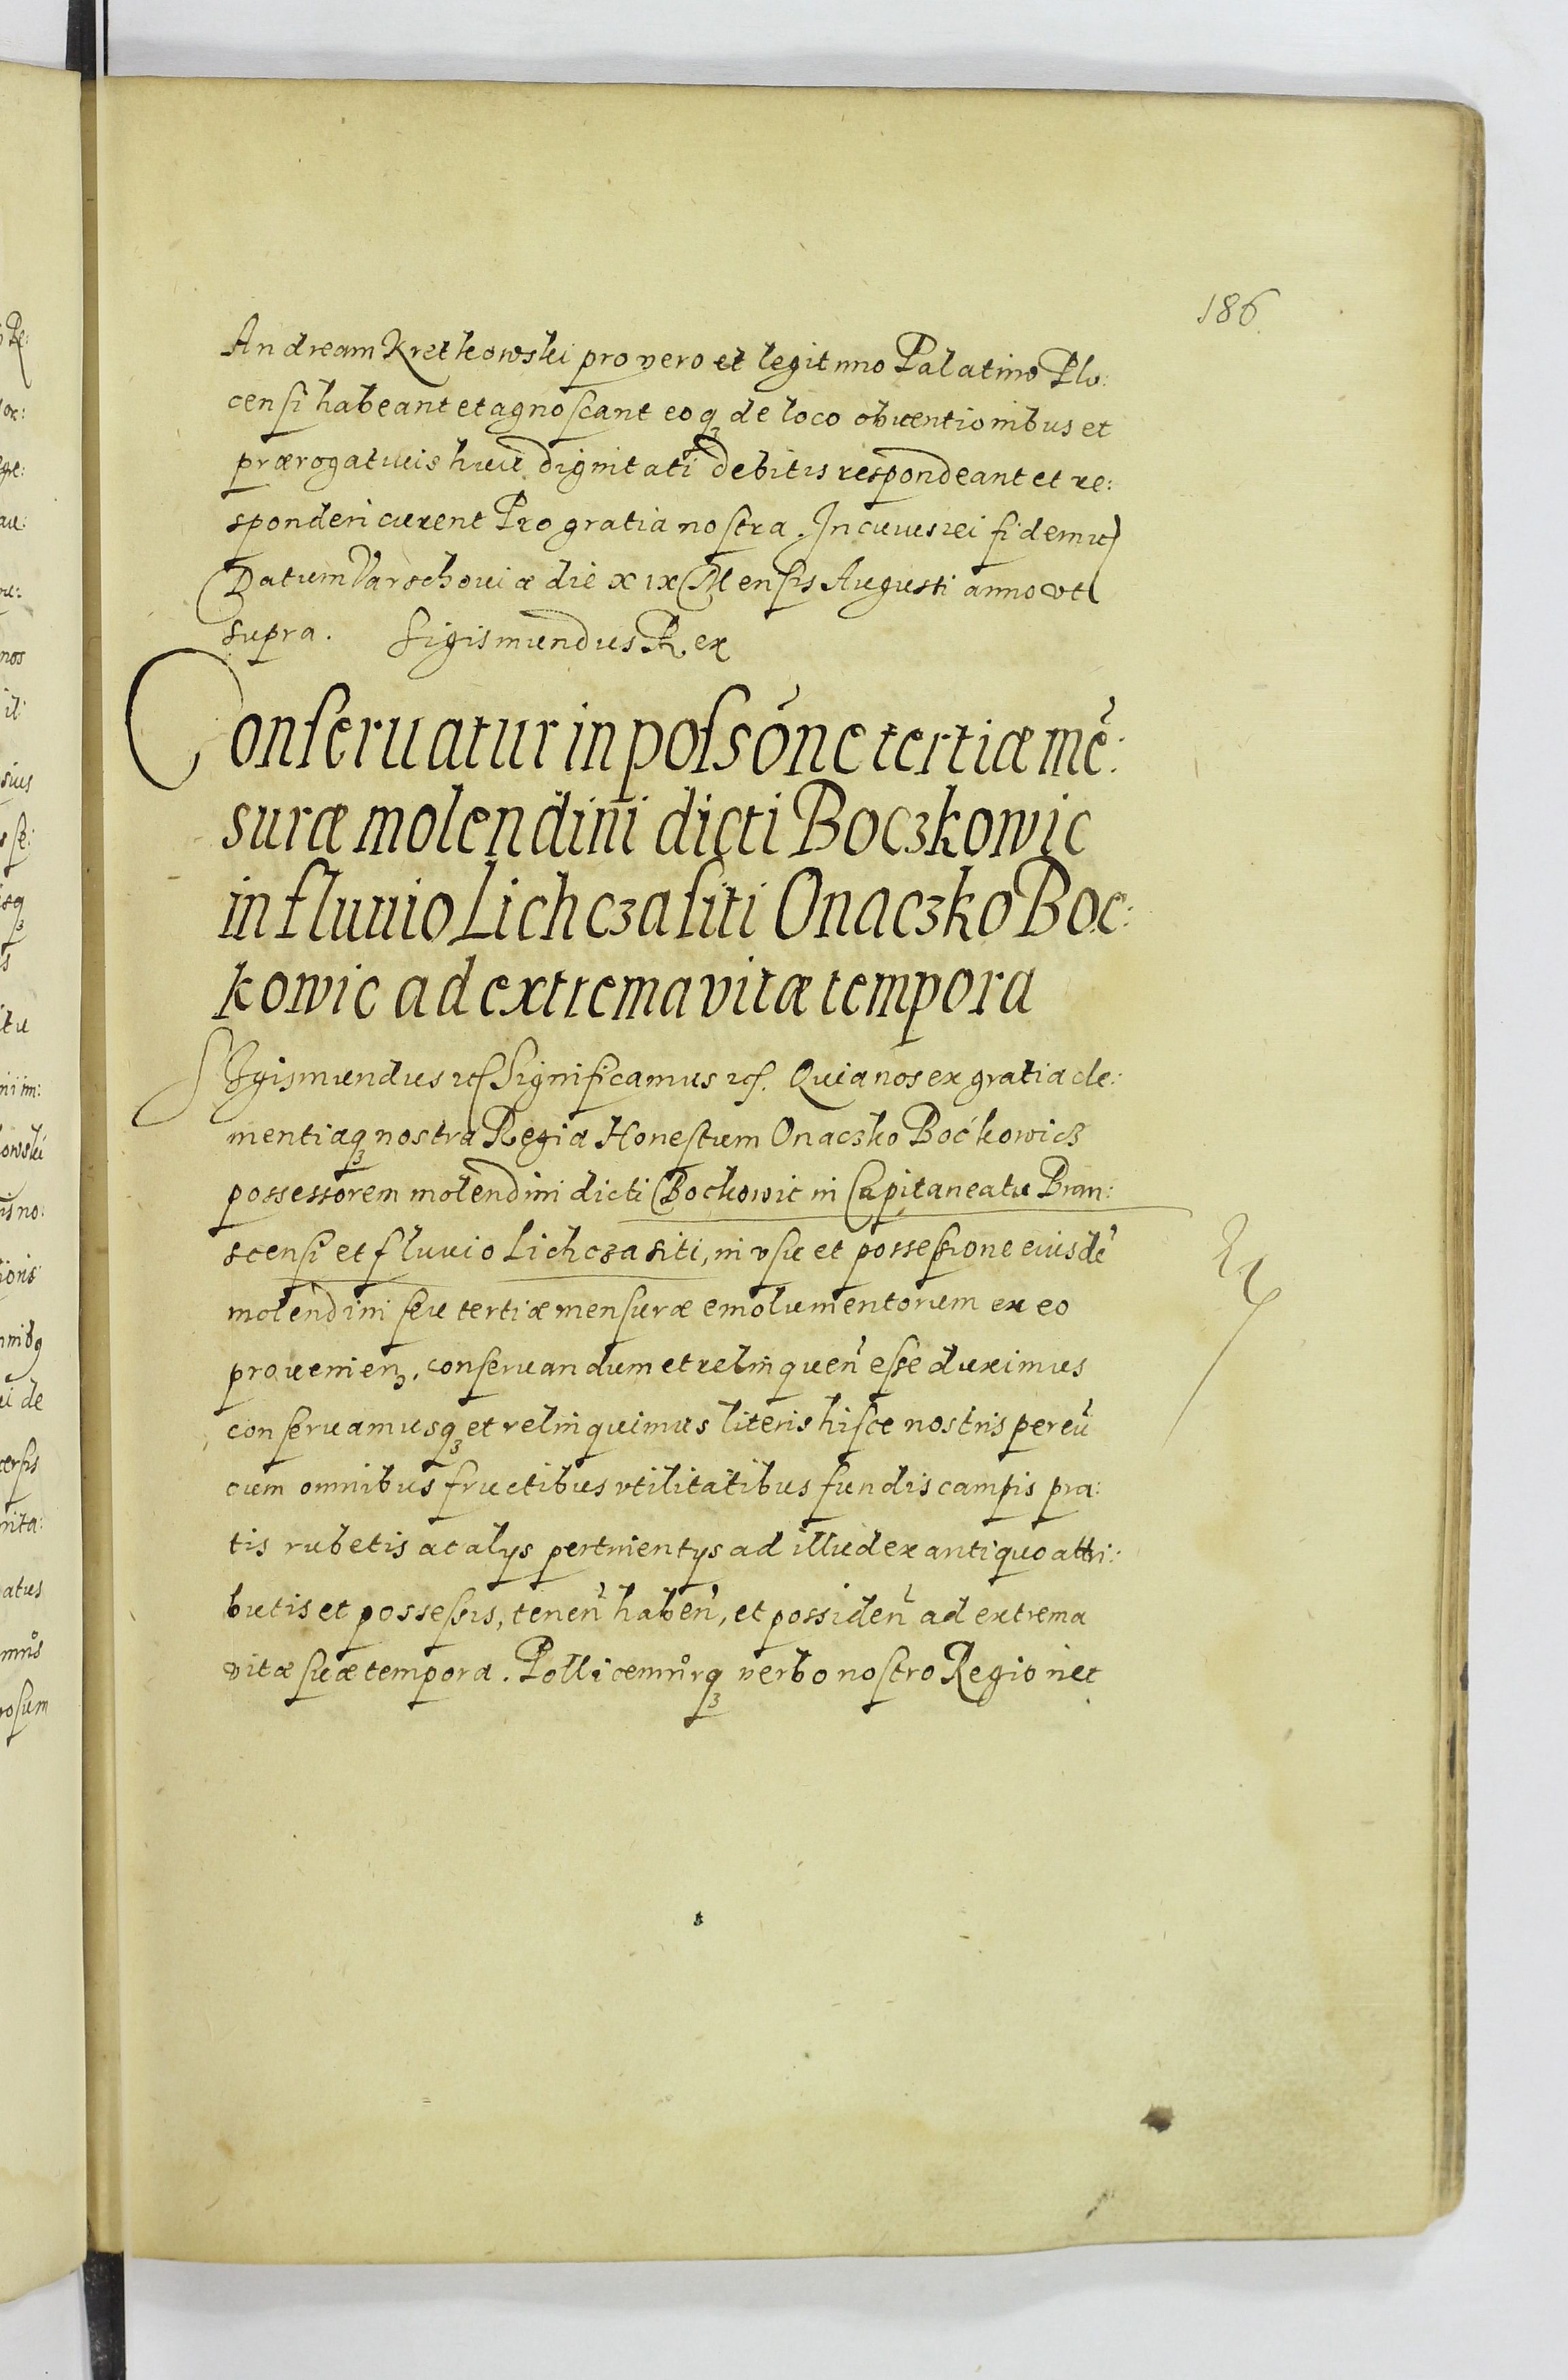 186
Andream Krethowski pro vero et legitimo Palatino Plo:
censi habeant et agnoscant eoqȝ de loco obventionibus et
prærogativis huic dignitati debitis respondeant et re:
sponderi curent Pro gratia nostra. In cuius rei fidem
Datum Varschoviæ die xix Mensis Augusti anno vt
supra. Sigismundus Rex
Conseruatur in possōne tertiæ mē:
suræ molendini dicti Boczkowic
in fluuio Lichcza siti Onaczko Boc:
kowic ad extrema vitæ tempora
Sigismundus etc Significamus etc. Quia nos ex gratia cle:
mentiaqȝ nostra Regia Honestum Onaczko Boćkowicz
possessorem molendini dicti Bockowic in Capitaneatu Bran:
scensi et fluuio Lichcza siti, in vsu et possessione eiusdē
molendini seu tertiæ mensuræ emolumentorum ex eo
provenienȝ. conseruandum et relinqueñ esse duximus
conseruamusqȝ et relinquimus literis hisce nostris per eū
cum omnibus fructibus vtilitatibus fundis campis pra:
tis rubetis ac alys pertinentys ad illud ex antiquo attri:
butis et possessis, teneñ habeñ, et possideñ ad extrema
vitæ suæ tempora. Pollicemůrqȝ verbo nostro Regio nec